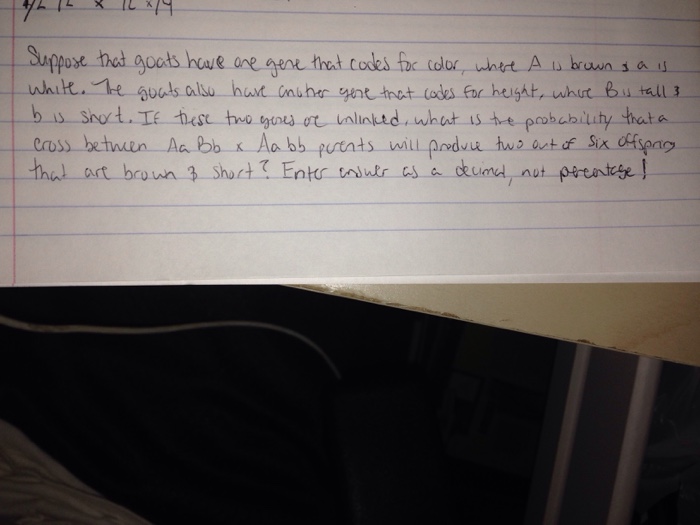 Suppose that goats have one gene that codes for color, where A is brown & a is
white. The goats also have another gene that codes for height, where B is tall &
b is short. If these two genes are unlinked, what is the probability that a
cross between AaBb x Aabb parents will produce two out of six offspring
that are brown & short? Enter answer as a decimal, not percentage!